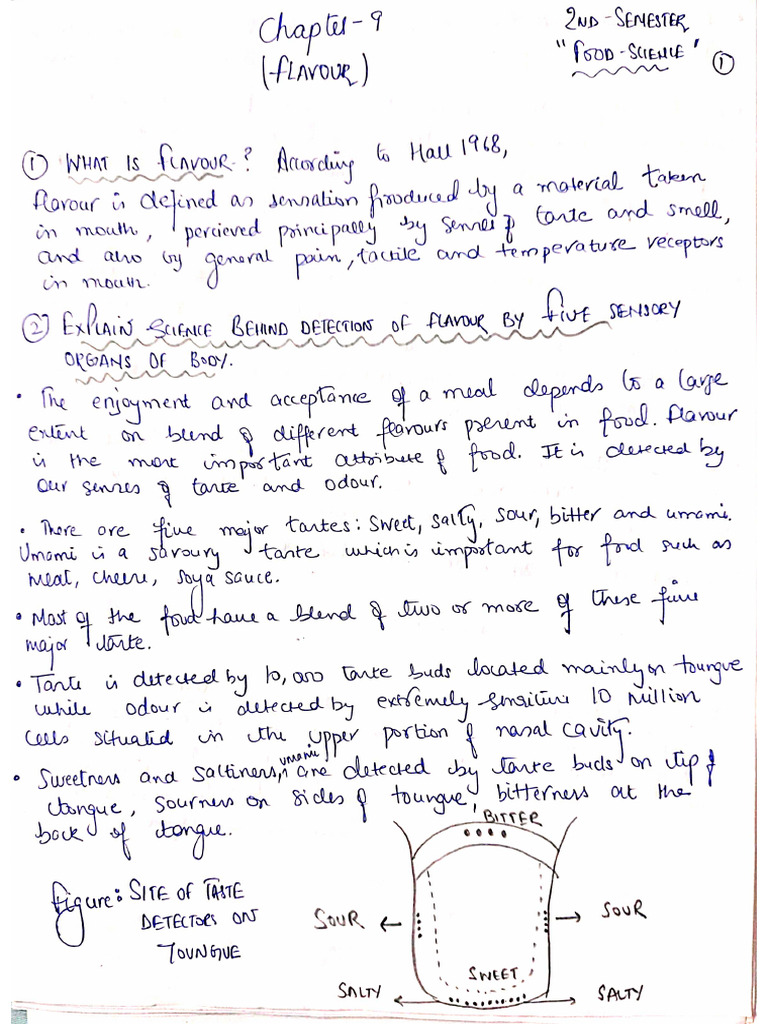 Chapter-9
(FLAVOUR)
2ND-SEMESTER
"FOOD-SCIENCE"
①
① WHAT IS FLAVOUR? According to Hall 1968,
flavour is defined as sensation produced by a material taken
in mouth, percieved principally by senses of taste and smell,
and also by general pain, tactile and temperature receptors
in mouth.
② EXPLAIN SCIENCE BEHIND DETECTION OF FLAVOUR BY FIVE SENSORY
ORGANS OF BODY.
• The enjoyment and acceptance of a meal depends to a large
extent on blend of different flavours present in food. Flavour
is the most important attribute of food. It is detected by
our senses of taste and odour.
• There are five major tastes: Sweet, salty, sour, bitter and umami.
Umami is a savoury taste which is important for food such as
meat, cheese, soya sauce.
• Most of the food have a blend of two or more of these five
major taste.
• Taste is detected by 10,000 taste buds located mainly on toungue
while odour is detected by extremely sensitive 10 Million
cells situated in the upper portion of nasal cavity.
• Sweetness and saltiness, umami are detected by taste buds on tip of
tongue, sourness on sides of toungue, bitterness at the
back of tongue.
figure: SITE OF TASTE
DETECTORS ON
TOUNGUE
BITTER
SOUR
SOUR
SWEET
SALTY
SALTY